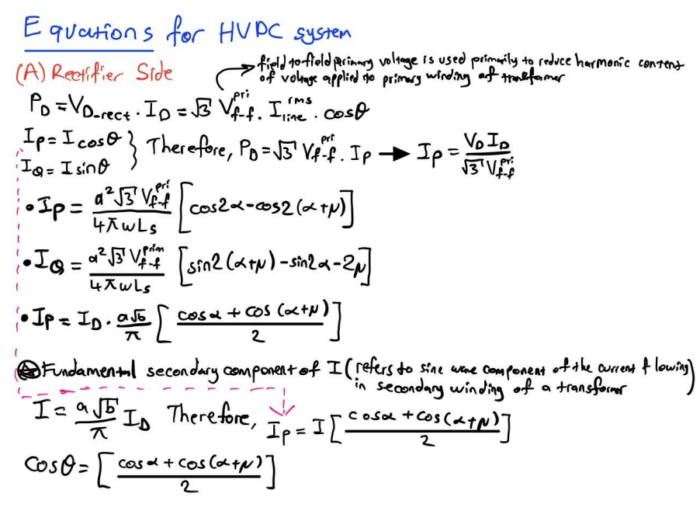 Equations for HVDC system
(A) Rectifier Side
field to field primary voltage is used primarily to reduce harmonic content
of voltage applied to primary winding of transformer
P_D = V_D_rect · I_D = √3 V_f-f^pri · I_line^rms · cosθ
I_P = I cosθ
I_Q = I sinθ
} Therefore, P_D = √3 V_f-f^pri · I_P → I_P = V_D I_D / √3 V_f-f^pri
• I_P = a²√3 V_f-f^pri / 4πωL_s [cos2α - cos2(α+μ)]
• I_Q = a²√3 V_f-f^prim / 4πωL_s [sin2(α+μ) - sin2α - 2μ]
• I_P = I_D · a√6 / π [cosα + cos(α+μ) / 2]
Fundamental secondary component of I (refers to sine wave component of the current flowing)
in secondary winding of a transformer
I = a√6 / π I_D Therefore, I_P = I [cosα + cos(α+μ) / 2]
cosθ = [cosα + cos(α+μ) / 2]